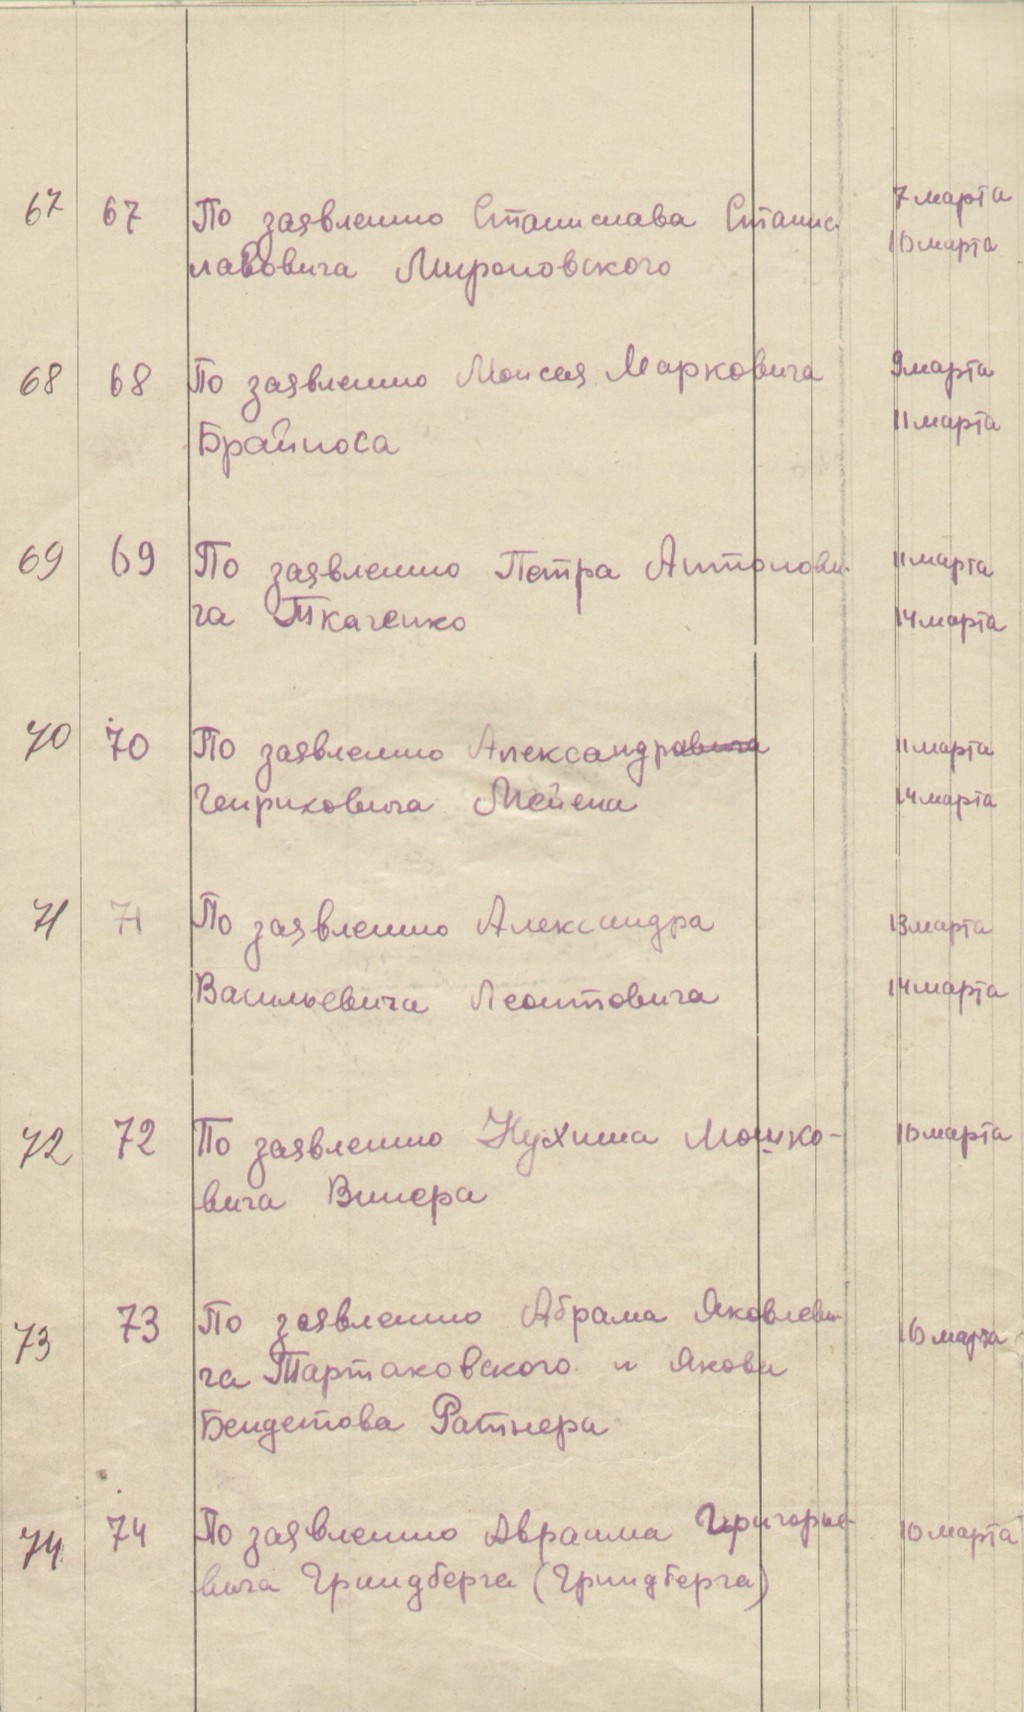 67 67 По заявлению Станислава Станис- 7 марта
лавовича Мироновского 10 марта
68 68 По заявлению Моисея Марковича 9 марта
Брайноса 11 марта
69 69 По заявлению Петра Антонови- 11 марта
ча Ткаченко 14 марта
70 70 По заявлению Александровича 11 марта
Генриховича Мейена 14 марта
71 71 По заявлению Александра 13 марта
Васильевича Леонтовича 14 марта
72 72 По заявлению Нухима Мошко- 10 марта
вича Винера
73 73 По заявлению Абрама Яковлеви- 10 марта
ча Тартаковского и Якова
Бендетова Ратнера
74 74 По заявлению Авраама Григорье- 10 марта
вича Гриндберга (Гриндберга)